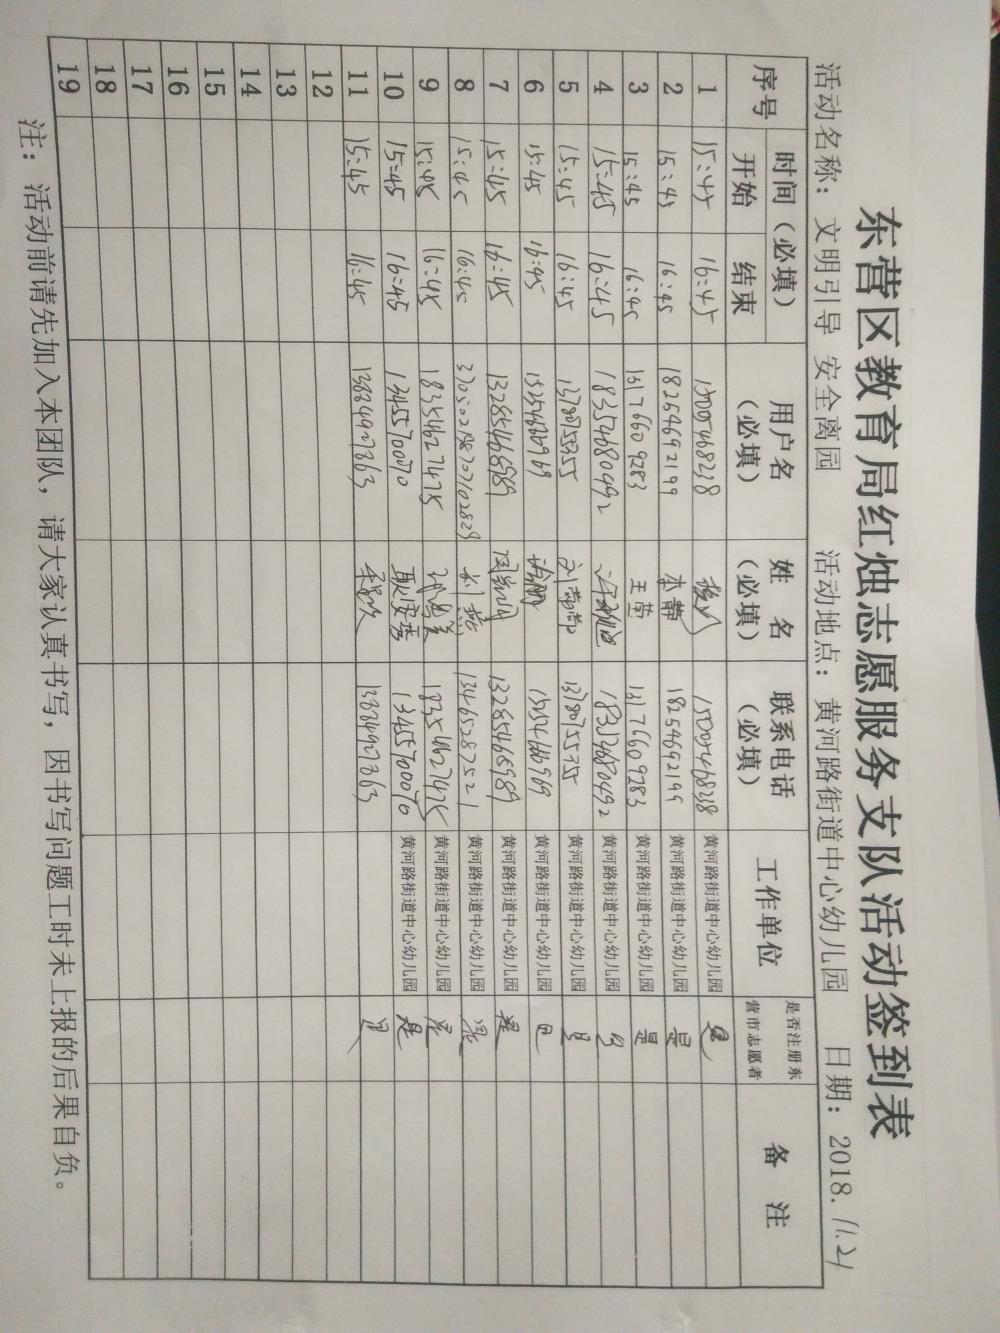 东营区教育局红烛志愿服务支队活动签到表
活动名称：文明引导 安全离园 活动地点：黄河路街道中心幼儿园 日期：2018.11.21
序号 时间（必填） 用户名（必填） 姓名（必填） 联系电话（必填） 工作单位 是否注册东营市志愿者 备注
开始 结束
1 15:45 16:45 黄河路街道中心幼儿园 是
2 15:45 16:45 18254692199 李静 18254692199 黄河路街道中心幼儿园 是
3 15:45 16:45 13176609283 王莹 13176609283 黄河路街道中心幼儿园 是
4 15:45 16:45 18354680492 黄河路街道中心幼儿园 是
5 15:45 16:45 13780755355 13780755355 黄河路街道中心幼儿园 是
6 15:45 16:45 黄河路街道中心幼儿园 是
7 15:45 16:45 13285468989 黄河路街道中心幼儿园 是
8 15:45 16:45 370502198707102829 刘燕 13465287521 黄河路街道中心幼儿园 是
9 15:45 16:45 18354627475 18354627475 黄河路街道中心幼儿园 是
10 15:45 16:45 13455700070 13455700070 黄河路街道中心幼儿园 是
11 15:45 16:45 13884997363 13884997363 是
12
13
14
15
16
17
18
19
注：活动前请先加入本团队，请大家认真书写，因书写问题工时未上报的后果自负。